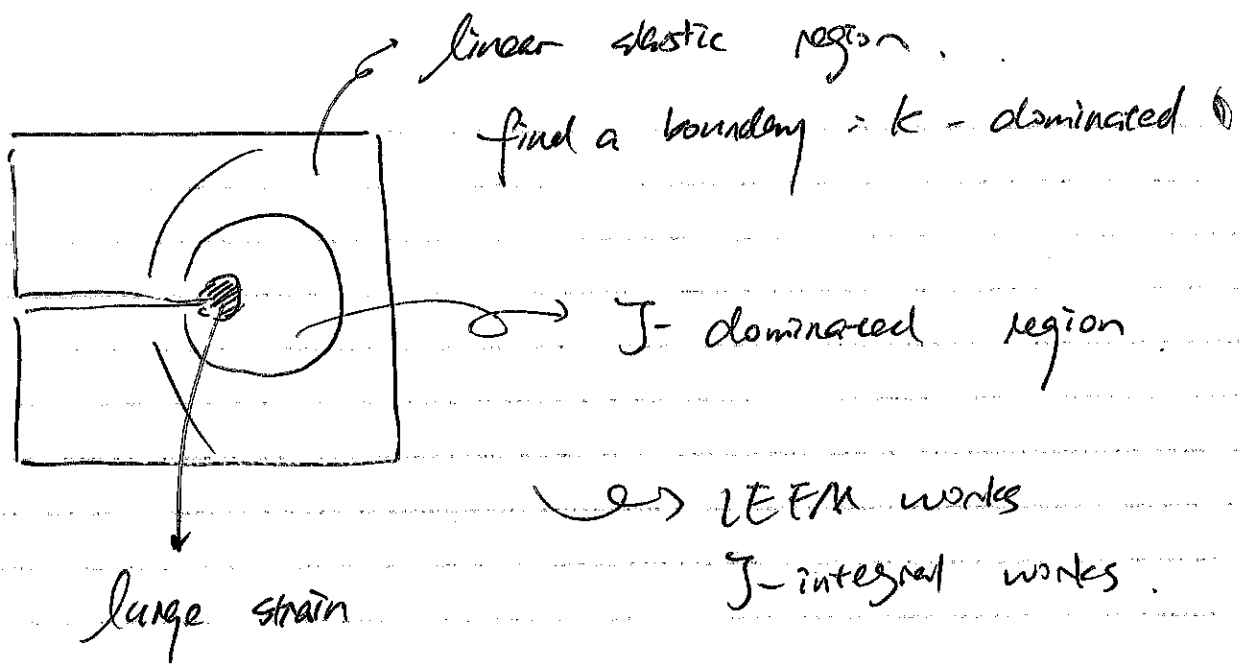 linear elastic region.
find a boundary : K - dominated
J- dominated region.
LEFM works
J-integral works.
large strain